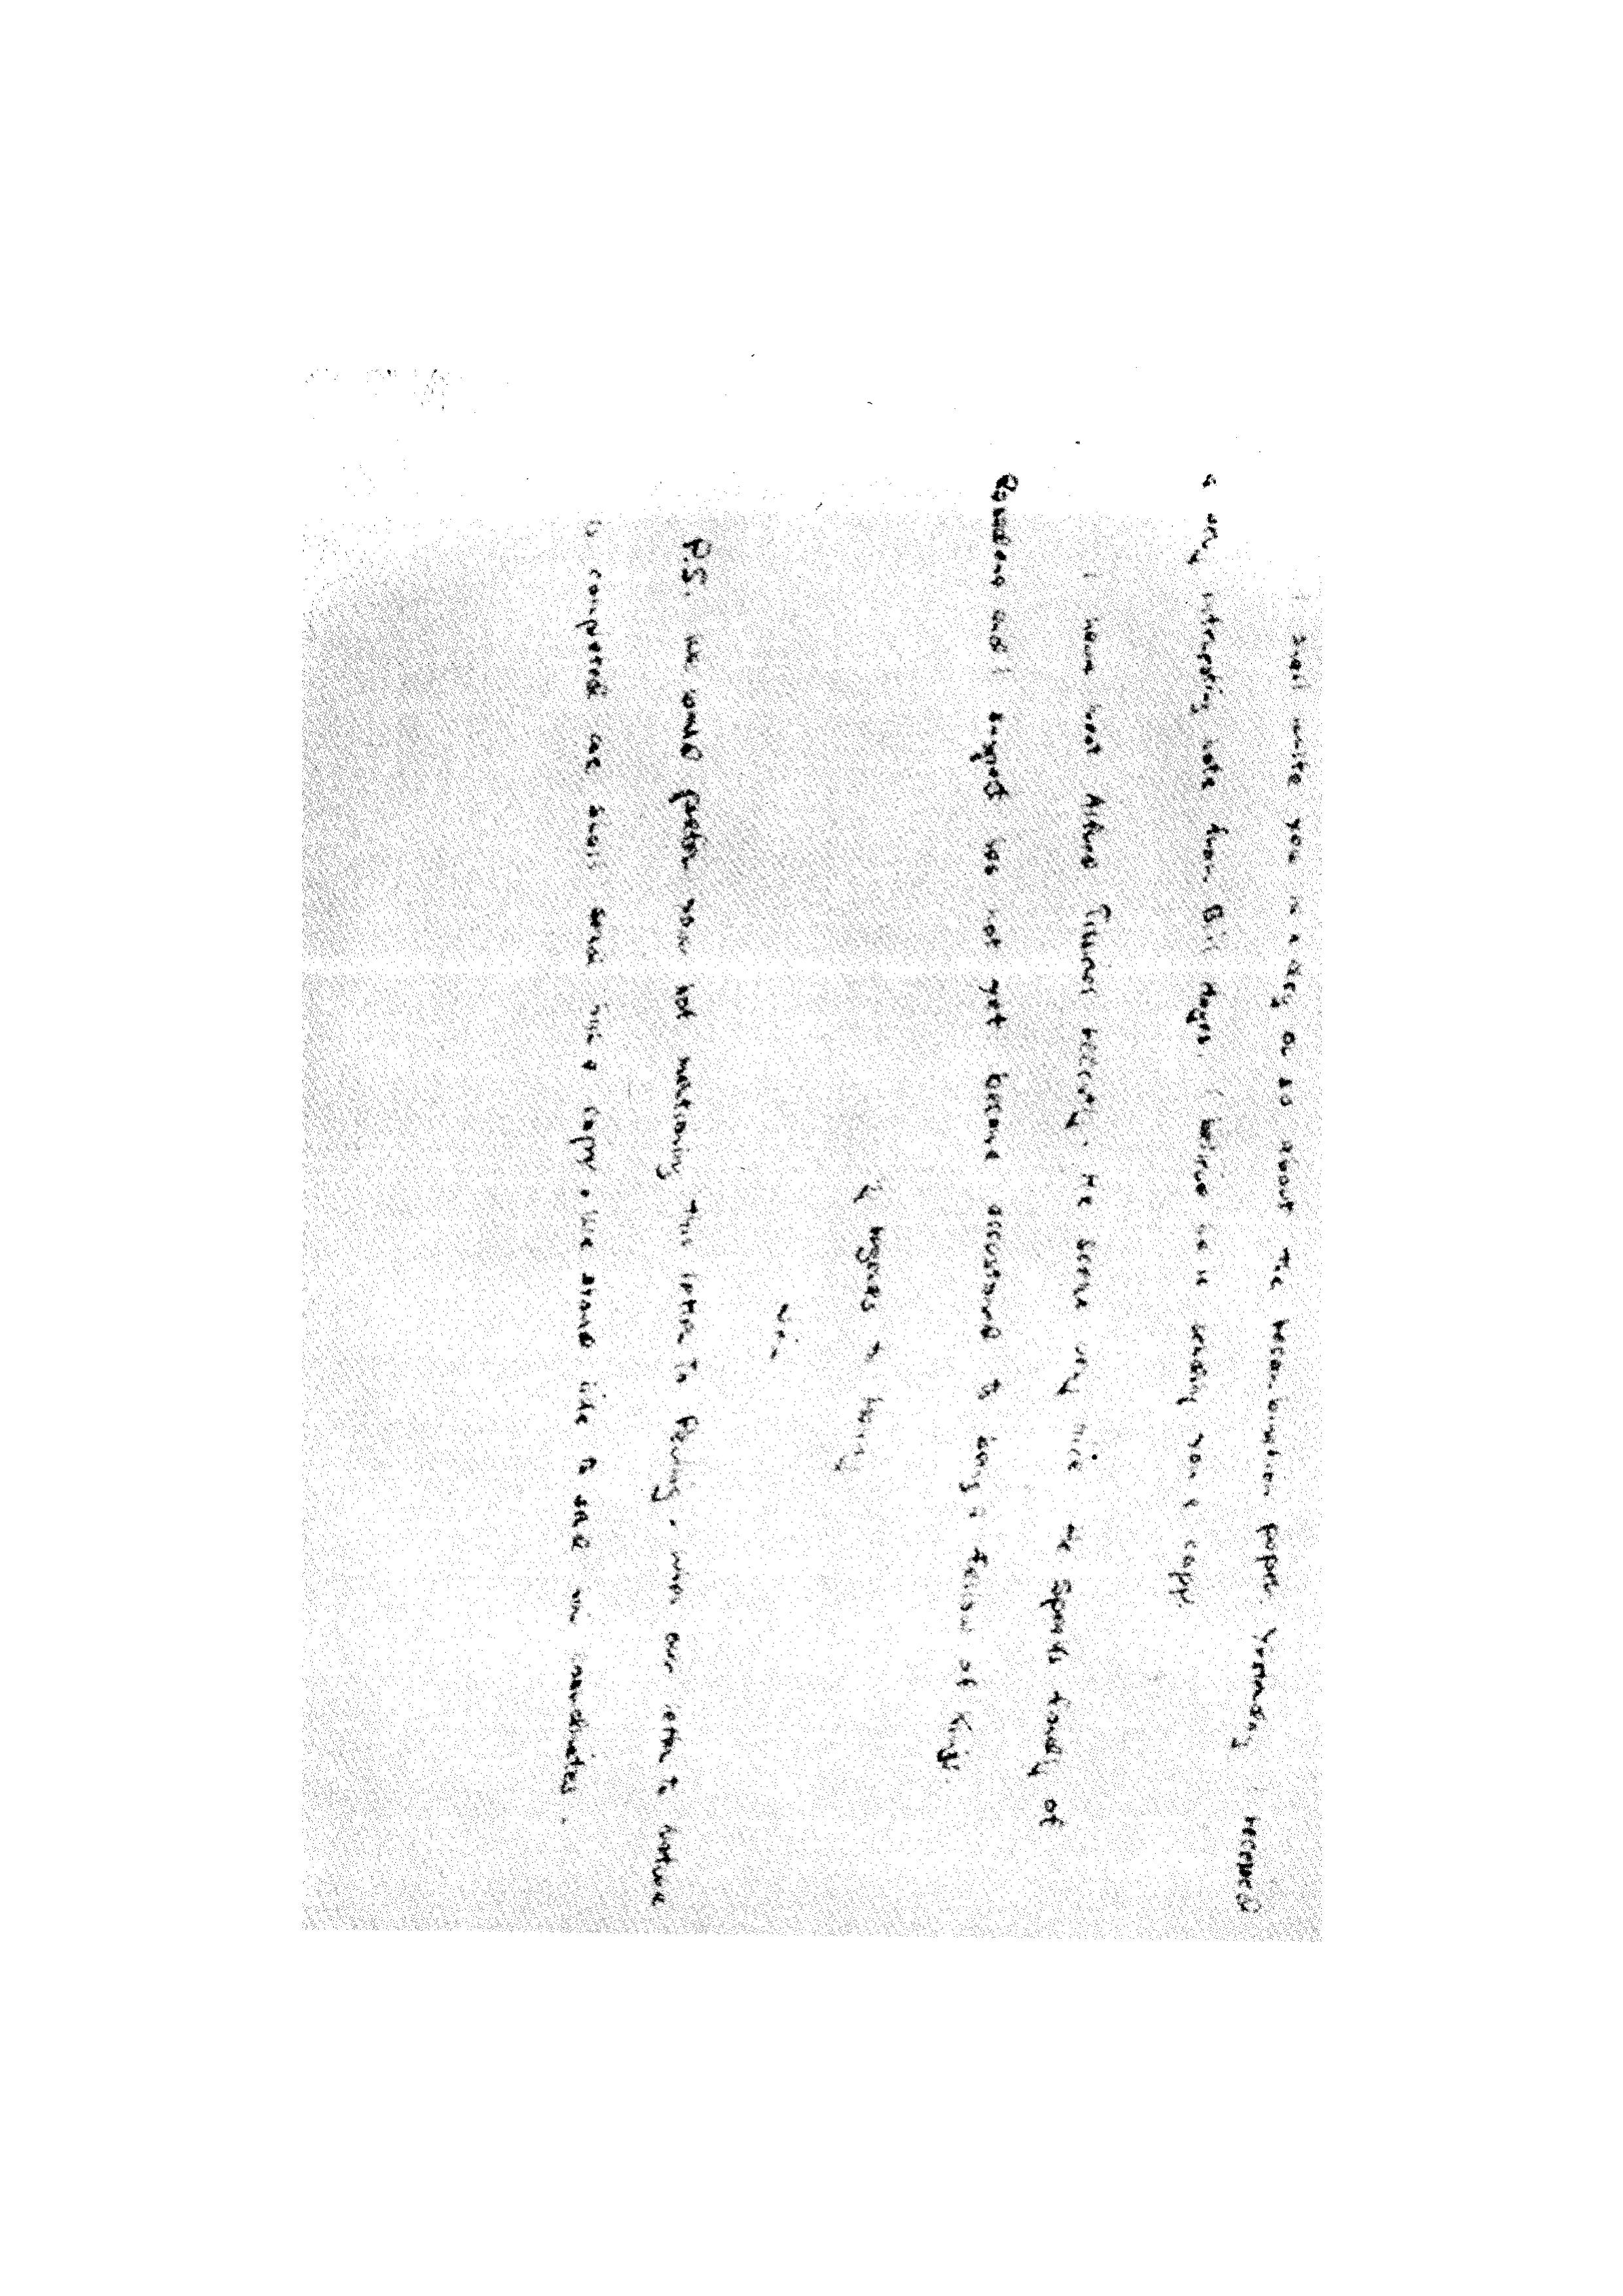 I shall write you in a day or so about the recombination paper. Yesterday I received
a very interesting note from Bill Hayes. I believe he is sending you a copy.
I have met Alfred Tissieres recently. He seems very nice. He speaks fondly of
and I suspect has not yet become accustomed to being a fellow of Kings.
My regards to family
Jim
P.S. We would prefer your not mentioning this letter to Pauling. When our letter to Nature
is completed we shall send him a copy. We should like to send him coordinates.